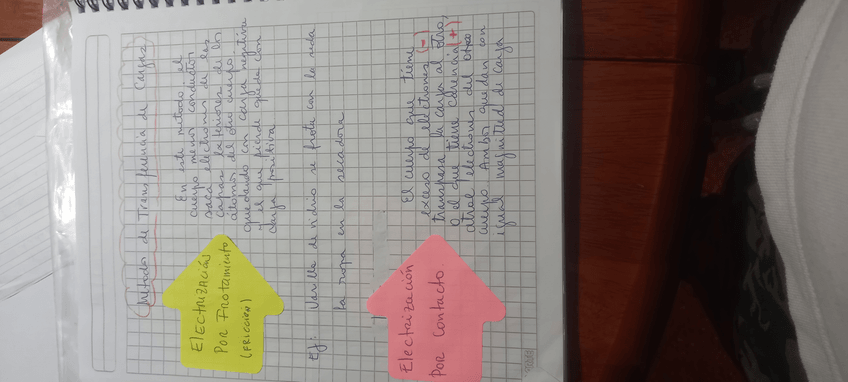 Metodos de Transferencia de Cargas
ELECTRIZACIÓN
POR Frotamiento
(FRICCION)
En este metodo el
cuerpo menos conductor
saca electrones de las
capas exteriores de los
atomos del otro cuerpo
quedando con carga negativa
y el que pierde queda con
carga positiva
Ej: Varilla de vidrio se frota con la seda
la ropa en la secadora
Electrización
POR Contacto.
El cuerpo que tiene
exceso de electrones (-)
transfiera la carga al otro,
O el que tiene carencia (+)
atrae electrones del otro
cuerpo Ambos quedan con
igual magnitud de carga